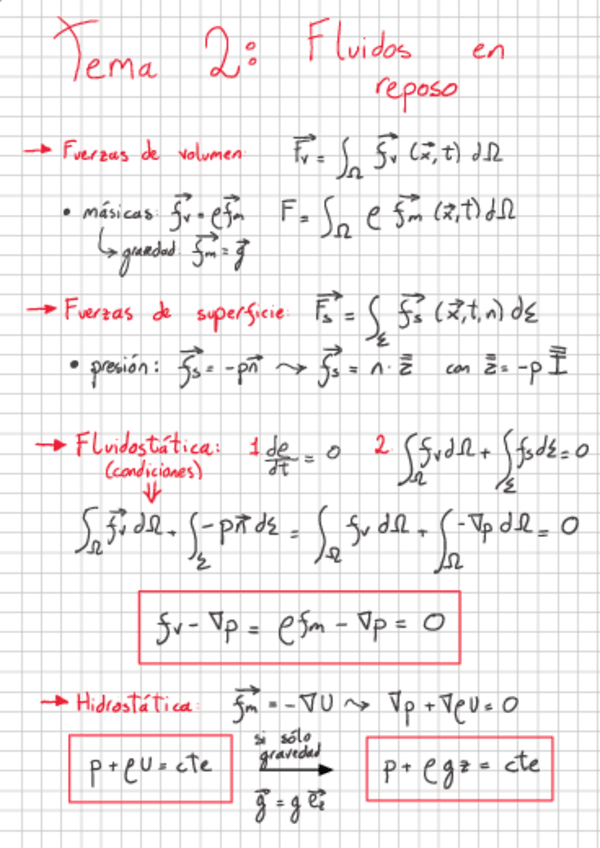 Tema 2: Fluidos en
reposo
→ Fuerzas de volumen: \vec{F_v} = ∫_Ω \vec{f_v} (\vec{x}, t) dΩ
• másicas: \vec{f_v} = ρ\vec{f_m} F = ∫_Ω ρ \vec{f_m} (\vec{x}, t) dΩ
↳ gravedad: \vec{f_m} = \vec{g}
→ Fuerzas de superficie: \vec{F_s} = ∫_Σ \vec{f_s} (\vec{x}, t, n) dΣ
• presión: \vec{f_s} = -p\vec{n} ⇝ \vec{f_s} = n · \bar{\bar{z}} con \bar{\bar{z}} = -p \bar{\bar{I}}
→ Fluidostática: 1. dρ/dt = 0 2. ∫_Ω f_v dΩ + ∫_Σ f_s dΣ = 0
(condiciones)
⇓
∫_Ω \vec{f_v} dΩ + ∫_Σ -p\vec{n} dΣ = ∫_Ω f_v dΩ + ∫_Ω -∇p dΩ = 0
f_v - ∇p = ρ f_m - ∇p = 0
→ Hidrostática: \vec{f_m} = -∇U ⇝ ∇p + ∇ρU = 0
si sólo
gravedad
p + ρU = cte → p + ρgz = cte
\vec{g} = g \vec{e_z}